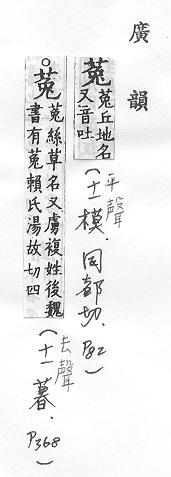 廣韻
菟 菟丘地名又音吐 (平聲 十一模．同都切、P82)
○菟 菟絲草名又虜複姓後魏書有菟賴氏湯故切四 (去聲 十一暮．P368)